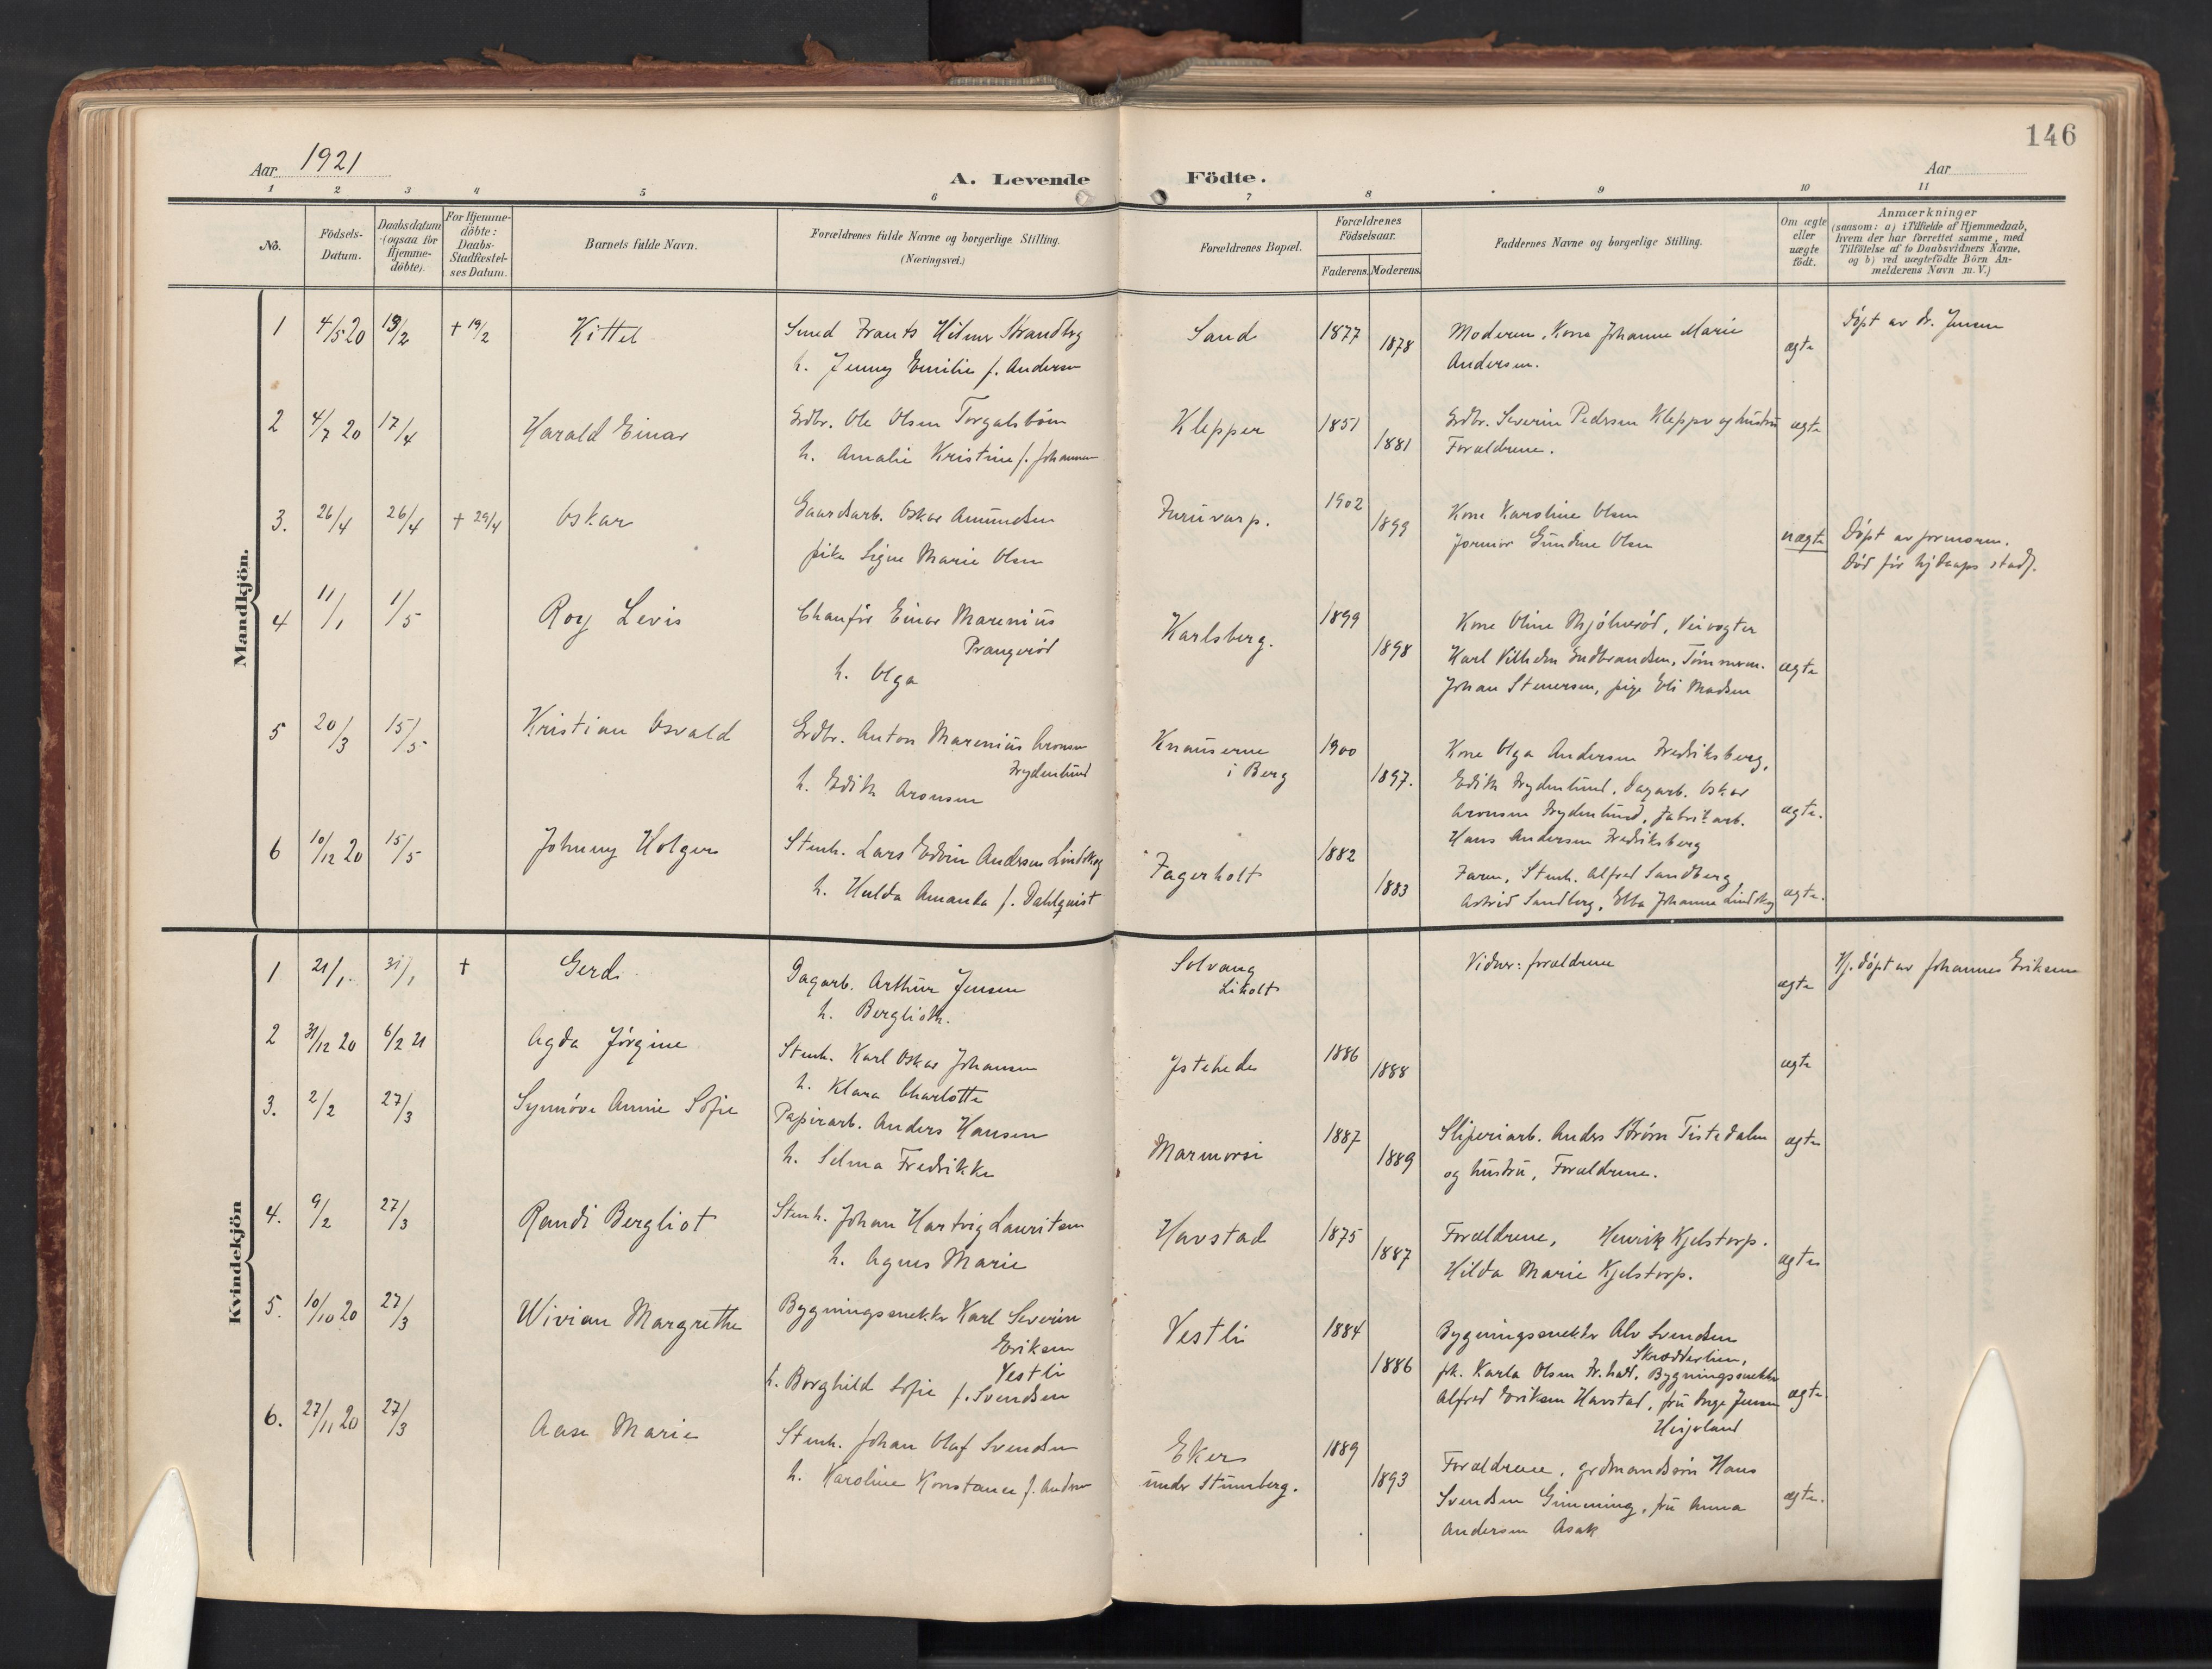 146
Aar 1921
A. Levende Födte.
Aar
1 2 3 4 5 6 7 8 9 10 11
No.
Födsels-Datum.
Daabsdatum (ogsaa for Hjemme-döbte).
For Hjemme-döbte: Daabs-Stadfæstel-ses Datum.
Barnets fulde Navn.
Forældrenes fulde Navne og borgerlige Stilling.
(Næringsvei.)
Forældrenes Bopæl.
Forældrenes Födselsaar.
Faderens. Moderens.
Faddernes Navne og borgerlige Stilling.
Om ægte eller uægte födt.
Anmærkninger
(saasom: a) i Tilfælde af Hjemmedaab, hvem der har forrettet samme, med Tilföielse af to Daabsvidners Navne, og b) ved uægtefödte Börn An-melderens Navn m. V.)
Mandkjön.
1 4/5 20 19/2 + 19/2 Kittel Smed Frants Hilmer Strandbg Sand 1877 Moderen, Kone Johanne Marie døpt av dr. Jensen
h. Jenny Emilie f. Andersen 1878 Andersen. ægte
2 4/7 20 17/4 Harald Einar Grdbr. Ole Olsen Torgalsbøen Klepper 1851 Grdbr. Severin Pedersen Klepper og hustru ægte
h. Amalie Kristine f. Johannesen 1881 Forældrene.
3. 26/4 26/4 + 29/4 Oskar Gaardsarb. Oskar Amundsen Furuvarp. 1902 Kone Karoline Olsen
pike Signe Marie Olsen 1899 formor Gundine Olsen uægte Døpt av formoren.
Død før hjdaaps stadf.
4 11/1 1/5 Roy Levis Chauför Einar Marenius Karlsberg. 1899 Kone Oline Mjølnerød, Veivogter
Prangerød 1898 Karl Vilhelm Gudbrandsen, Tømmerm. ægte
h. Olga Johan Stenersen, pige Eli Madsen
5 20/3 15/5 Kristian Osvald Grdbr. Anton Marenius Aronsen Knauserne 1900 Kone Olga Andersen Fredriksberg,
Frydenlund i Berg 1897. Edith Frydenlund, Dagarb. Oskar
h. Edith Aronsen Aronsen Frydenlund, Fabrikarb. ægte.
Hans Andersen Fredriksberg
6 10/12 20 15/5 Johnny Holger Stenh. Lars Edvin Andersen Lindskog Fagerholt 1882 Faren, Stenh. Alfred Sandberg
h. Hulda Amanda f. Dahlquist 1883 Astrid Sandberg, Ebba Johanne Lindskog ægte.
Kvindekjön
1 21/1 31/1 + Gerd Dagarb. Arthur Jensen Solvang Vidner: forældrene Hj. døpt av Johannes Eriksen
h. Berglioth. Liholt ægte
2 31/12 20 6/2 21 Agda Jørgine Stenh. Karl Oskar Johansen Istehede 1886 ægte
h. Klara Charlotte 1888
3. 2/2 27/3 Synnöve Annie Sofie Papirarb. Anders Hansen Marmorsi 1887 Sliperiarb. Anders Strøm Tistedalen ægte
h. Selma Fredrikke 1889 og hustru, Forældrene.
4. 9/2 27/3 Randi Bergliot Stenh. Johan Hartvig Lauritsen Havstad 1875 Forældrene, Henrik Kjelstorp.
h. Agnes Marie 1887 Hilda Marie Kjelstorp. ægte
5. 10/10 20 27/3 Wivian Margrethe Bygningssnekker Karl Severin Vestli 1884 Bygningssnekker Alv Svendsen
Eriksen Skrædderlien,
Vestli 1886 frk. Karla Olsen Fr.hald, Bygningssnekker
h. Borghild Sofie f. Svendsen Alfred Eriksen Havstad, fru Inge Jensen ægte.
6. 27/11 20 27/3 Aase Marie Stenh. Johan Olaf Svendsen Eker 1889 Forældrene, grdmandssøn Hans
h. Karoline Konstance f. Andersen under Stumberg. 1893 Svendsen Gimming, fru Anna ægte.
Andersen Asak